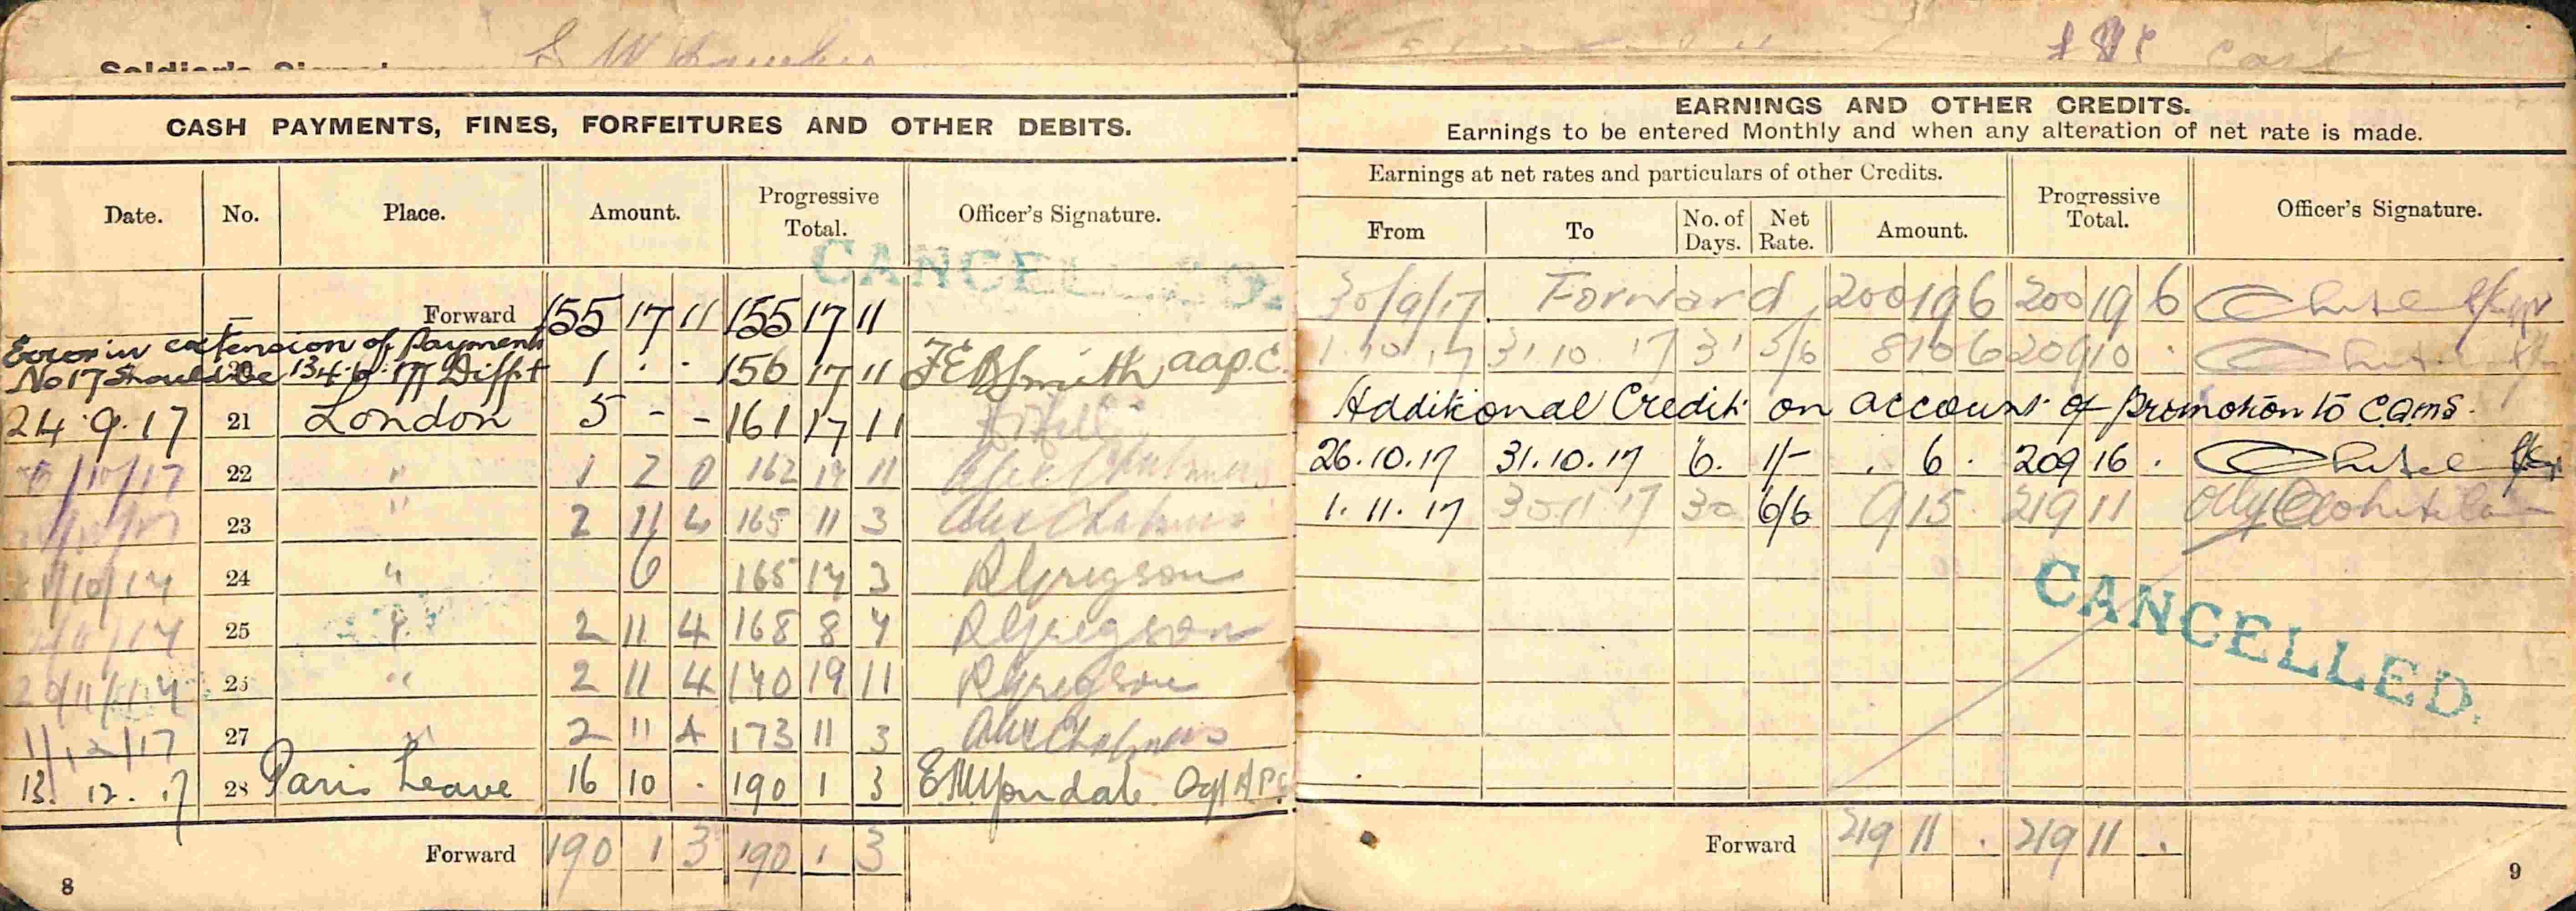 CASH PAYMENTS, FINES, FORFEITURES AND OTHER DEBITS.
Date. No. Place. Amount. Progressive Total. Officer's Signature.
CANCELLED.
Forward 155 17 11 155 17 11
Error in extension of Payment
No 17 should be 134.6.17 Diff't 1 . . 156 17 11 F E B Smith AAPC.
24.9.17 21 London 5 - - 161 17 11
/10/17 22 " 1 162 17 11 Alex Chalmers
23 " 2 11 4 165 11 3 Alex Chalmers
/10/17 24 " 6 165 17 3 R Gregson
25 " 2 11 4 168 8 7 R Gregson
/11/17 26 " 2 11 4 170 19 11 R Gregson
1/12/17 27 " 2 11 4 173 11 3 Alex Chalmers
13. 12. 17 28 Paris Leave 16 10 . 190 1 3
Forward 190 1 3 190 1 3
8
EARNINGS AND OTHER CREDITS.
Earnings to be entered Monthly and when any alteration of net rate is made.
Earnings at net rates and particulars of other Credits. Progressive Total. Officer's Signature.
From To No. of Days. Net Rate. Amount.
30/9/17 Forward 200 19 6 200 19 6
1.10.17 31.10.17 31 5/6 8 10 6 209 10 .
Additional Credit on account of promotion to CQMS.
26.10.17 31.10.17 6. 1/- . 6 . 209 16 .
1.11.17 30.11.17 30 6/6 9 15 . 219 11
CANCELLED.
Forward 219 11 . 219 11 .
9